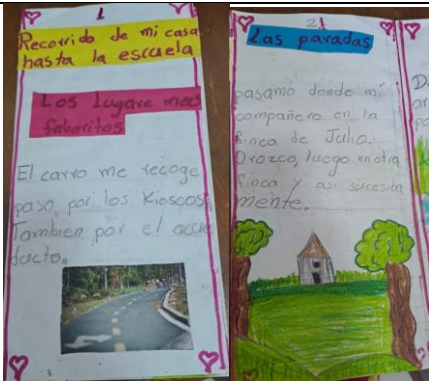 1
Recorrido de mi casa
hasta la escuela
Los Lugare mas
favoritos
El carro me recoge
paso, por los Kioscos
Tambien por el acue
ducto.
2
Las paradas
pasamo donde mi
compañero en la
finca de Julio.
Orozco, luego en otra
finca y asi sucesiba
mente.